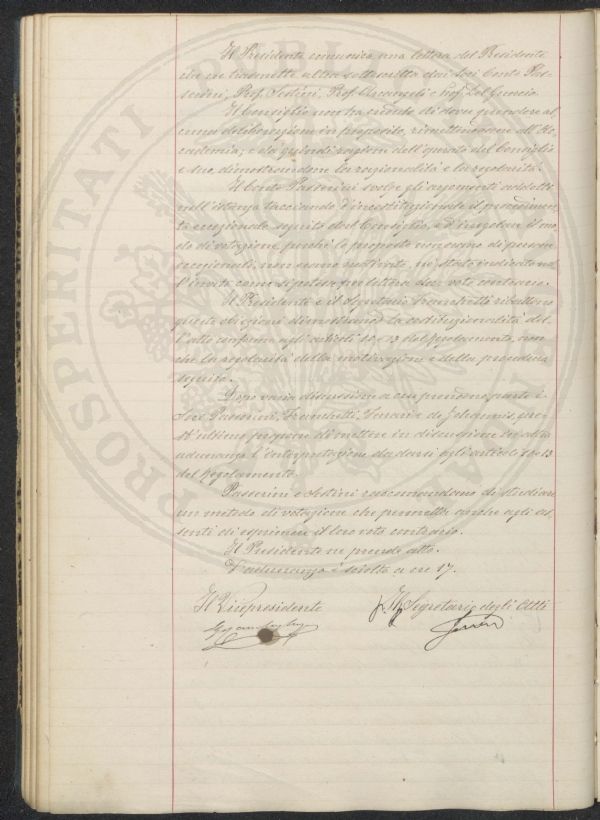 Il Presidente comunica una lettera del Presidente
che ne trasmette altra sottoscritta dai Soci Conte Pas-
serini, Prof. Sestini, Prof. Arcangeli e Prof. Del Guercio.
Il Consiglio non ha creduto di dover prendere al-
cuna deliberazione in proposito, rimettendosene all'Ac-
cademia; e dà quindi ragioni dell'operato del Consiglio
e ne dimostrandone la ragionalità e la regolarità.
Il Conte Passerini svolge gli argomenti addotti
nell'istanza tacciando d'incostituzionale il procedimen-
to eccezionale seguito dal Consiglio, e d'irregolare il mo-
do di votazione, perché le proposte non erano di persone
eccezionali, non erano motivate, né stato indicato nel-
l'invito come si potesse per lettera dar voto contrario.
Il Presidente e il Segretario Franchetti ribattono
queste obiezioni dimostrando la costituzionalità del-
l'atto conforme agli articoli 10 e 13 del Regolamento, non
che la regolarità della motivazione e della procedura
seguita.
Dopo varia discussione a cui prendono parte i
Soci Passerini, Franchetti, Ferrari e de Johannis, que-
st'ultimo propone di mettere in discussione in altra
adunanza l'interpretazione da darsi agli articoli 10 e 13
del Regolamento.
Passerini e Sestini raccomandano di studiare
un metodo di votazione che permetta anche agli as-
senti di esprimere il loro voto contrario.
Il Presidente ne prende atto.
L'adunanza è sciolta a ore 17.
Il Vicepresidente
Il Segretario degli Atti